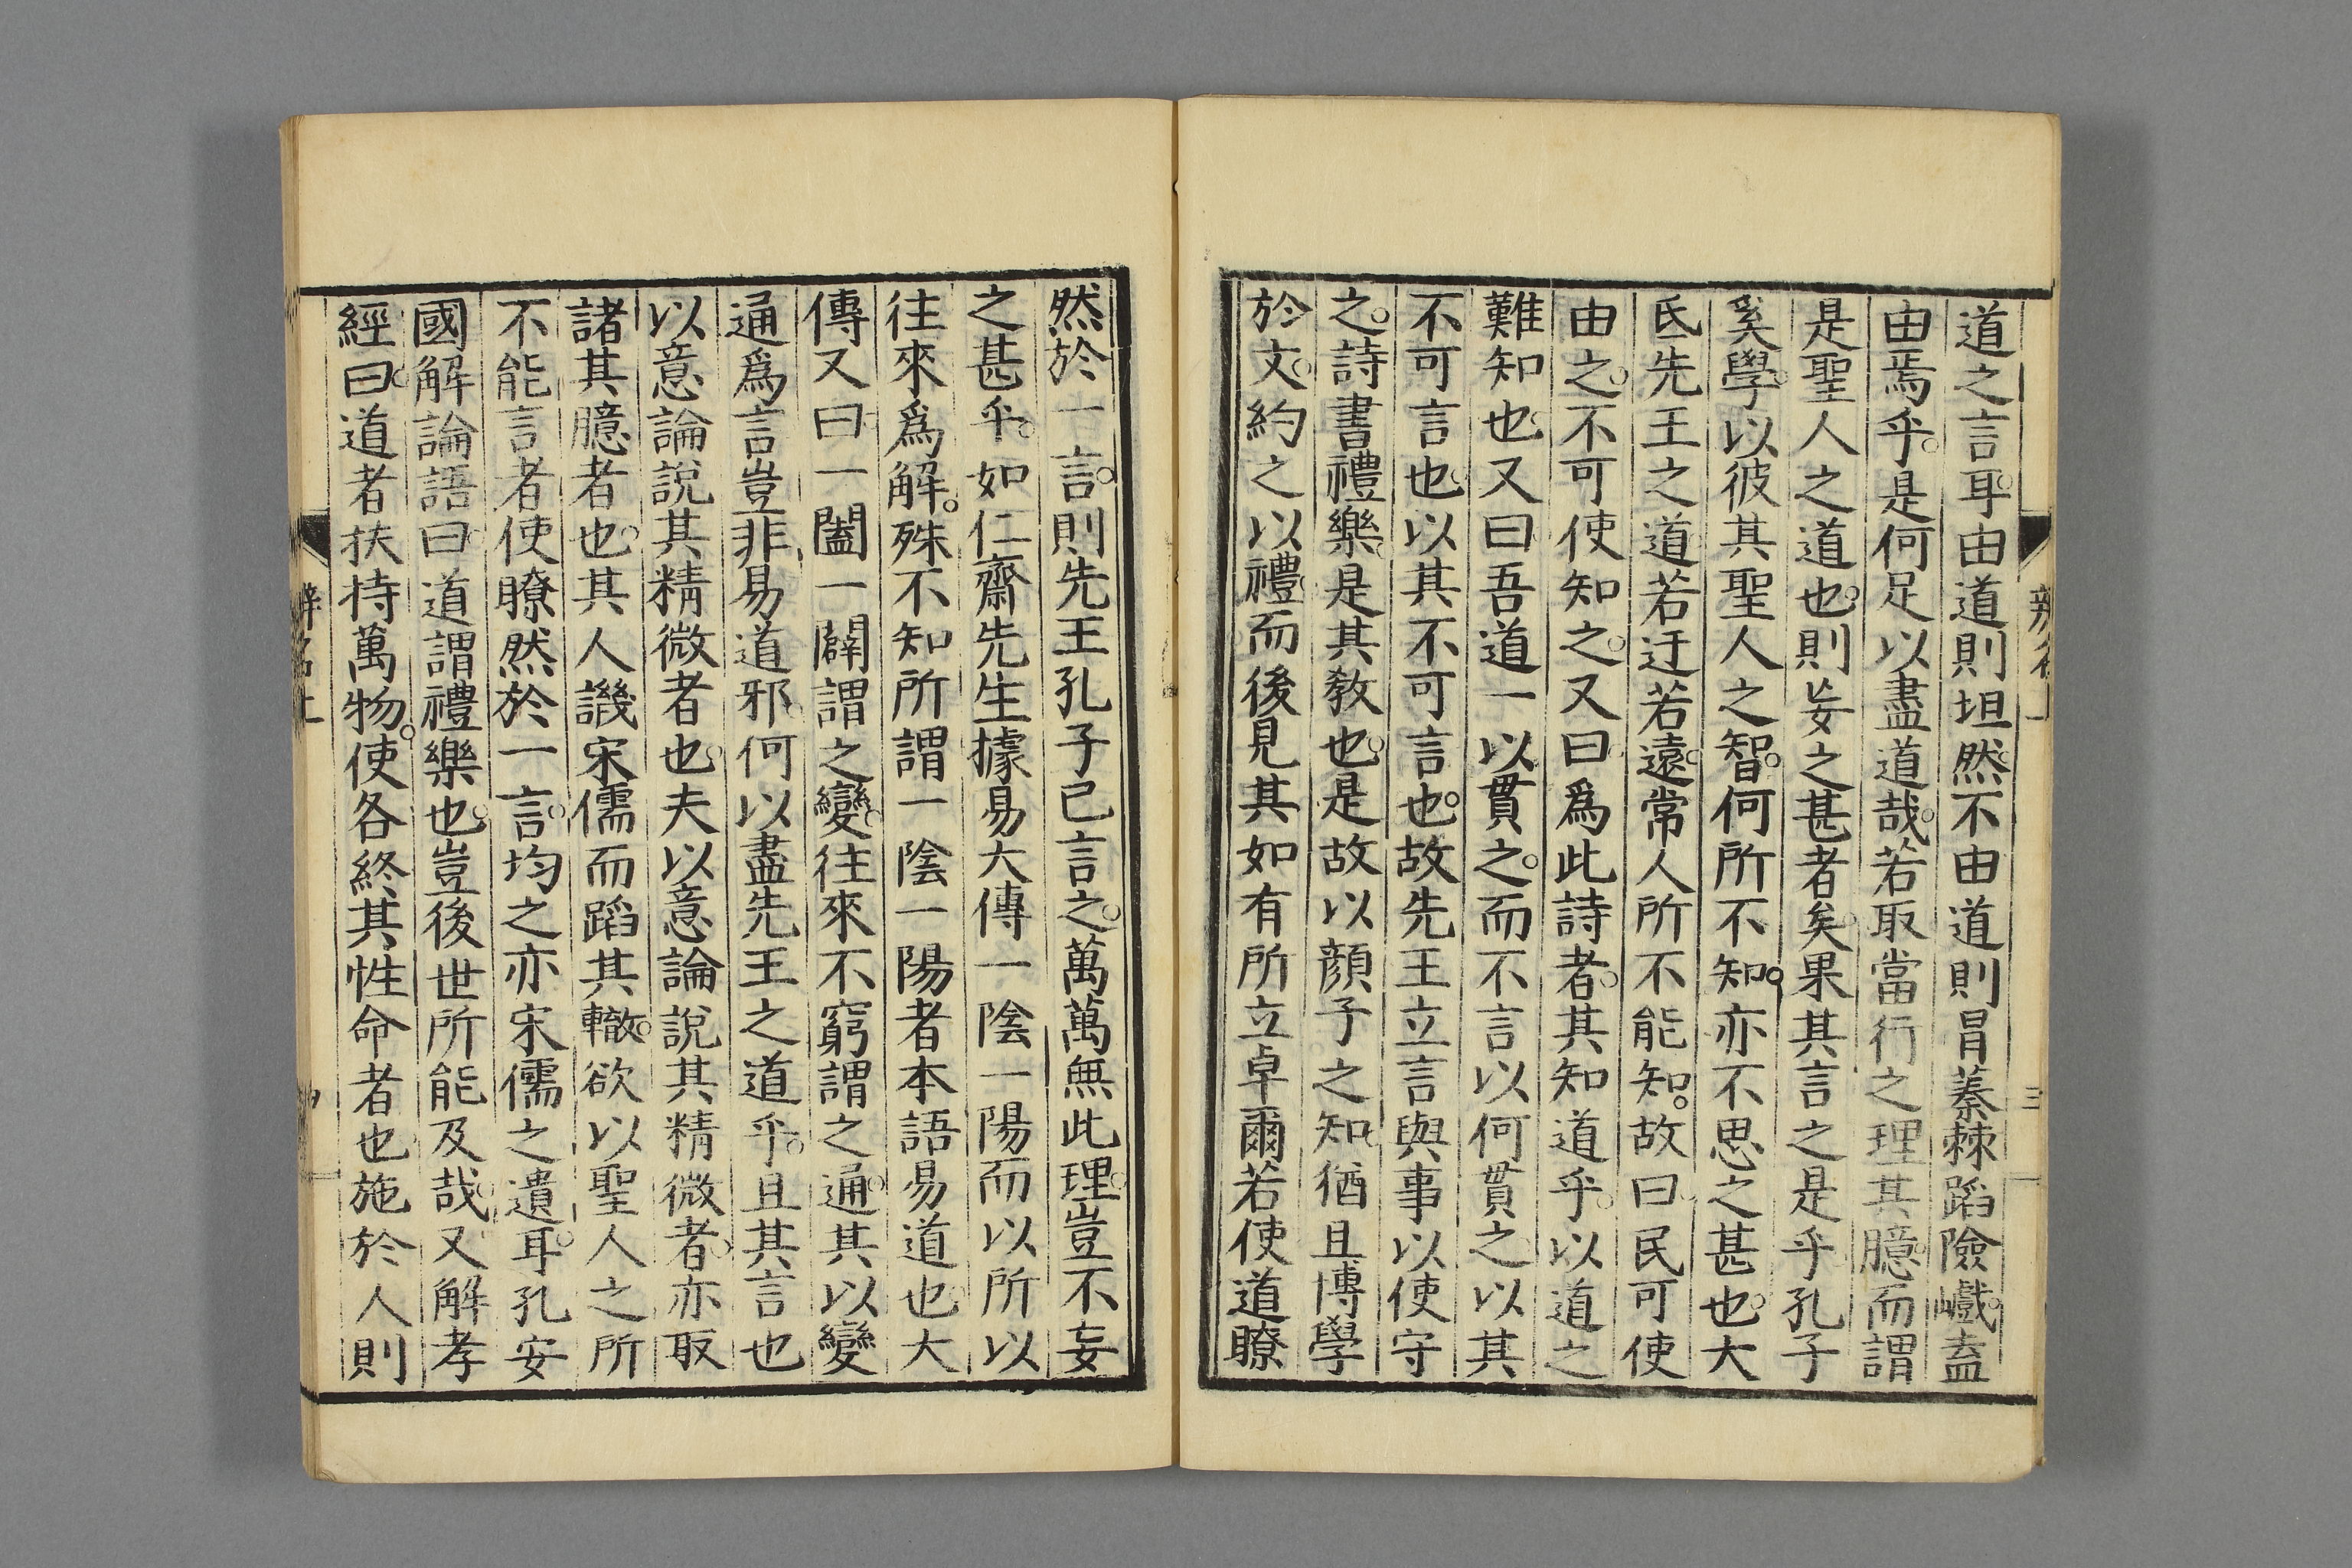 道之言耳。由道則坦然。不由道則冒蓁棘蹈險巇。盍
由焉乎。是何足以盡道哉。若取當行之理其臆。而謂
是聖人之道也。則妄之甚者矣。果其言之是乎。孔子
奚學。以彼其聖人之智。何所不知。亦不思之甚也。大
氐先王之道。若迂若遠。常人所不能知。故曰民可使
由之。不可使知之。又曰爲此詩者。其知道乎。以道之
難知也。又曰吾道一以貫之。而不言以何貫之。以其
不可言也。以其不可言也。故先王立言與事以使守
之。詩書禮樂。是其敎也。是故以顔子之知。猶且博學
於文。約之以禮。而後見其如有所立卓爾。若使道瞭
辨名上
三
然於一言。則先王孔子已言之。萬萬無此理。豈不妄
之甚乎。如仁齋先生據易大傳一陰一陽而以所以
往來爲解。殊不知所謂一陰一陽者本語易道也。大
傳又曰。一闔一闢謂之變。往來不窮謂之通。其以變
通爲言。豈非易道邪。何以盡先王之道乎。且其言也
以意論說其精微者也。夫以意論說其精微者。亦取
諸其臆者也。其人譏宋儒而蹈其轍。欲以聖人之所
不能言者使瞭然於一言。均之亦宋儒之遺耳。孔安
國解論語曰。道謂禮樂也。豈後世所能及哉。又解孝
經曰。道者扶持萬物。使各終其性命者也。施於人則
辨名上